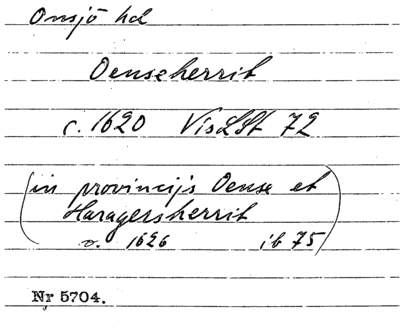 Onsjö hd
Oenseherrit
c. 1620 VisLSt 72
(in provincijs Oense et
Haragersherrit
o. 1626 ib 75)
Nr 5704.